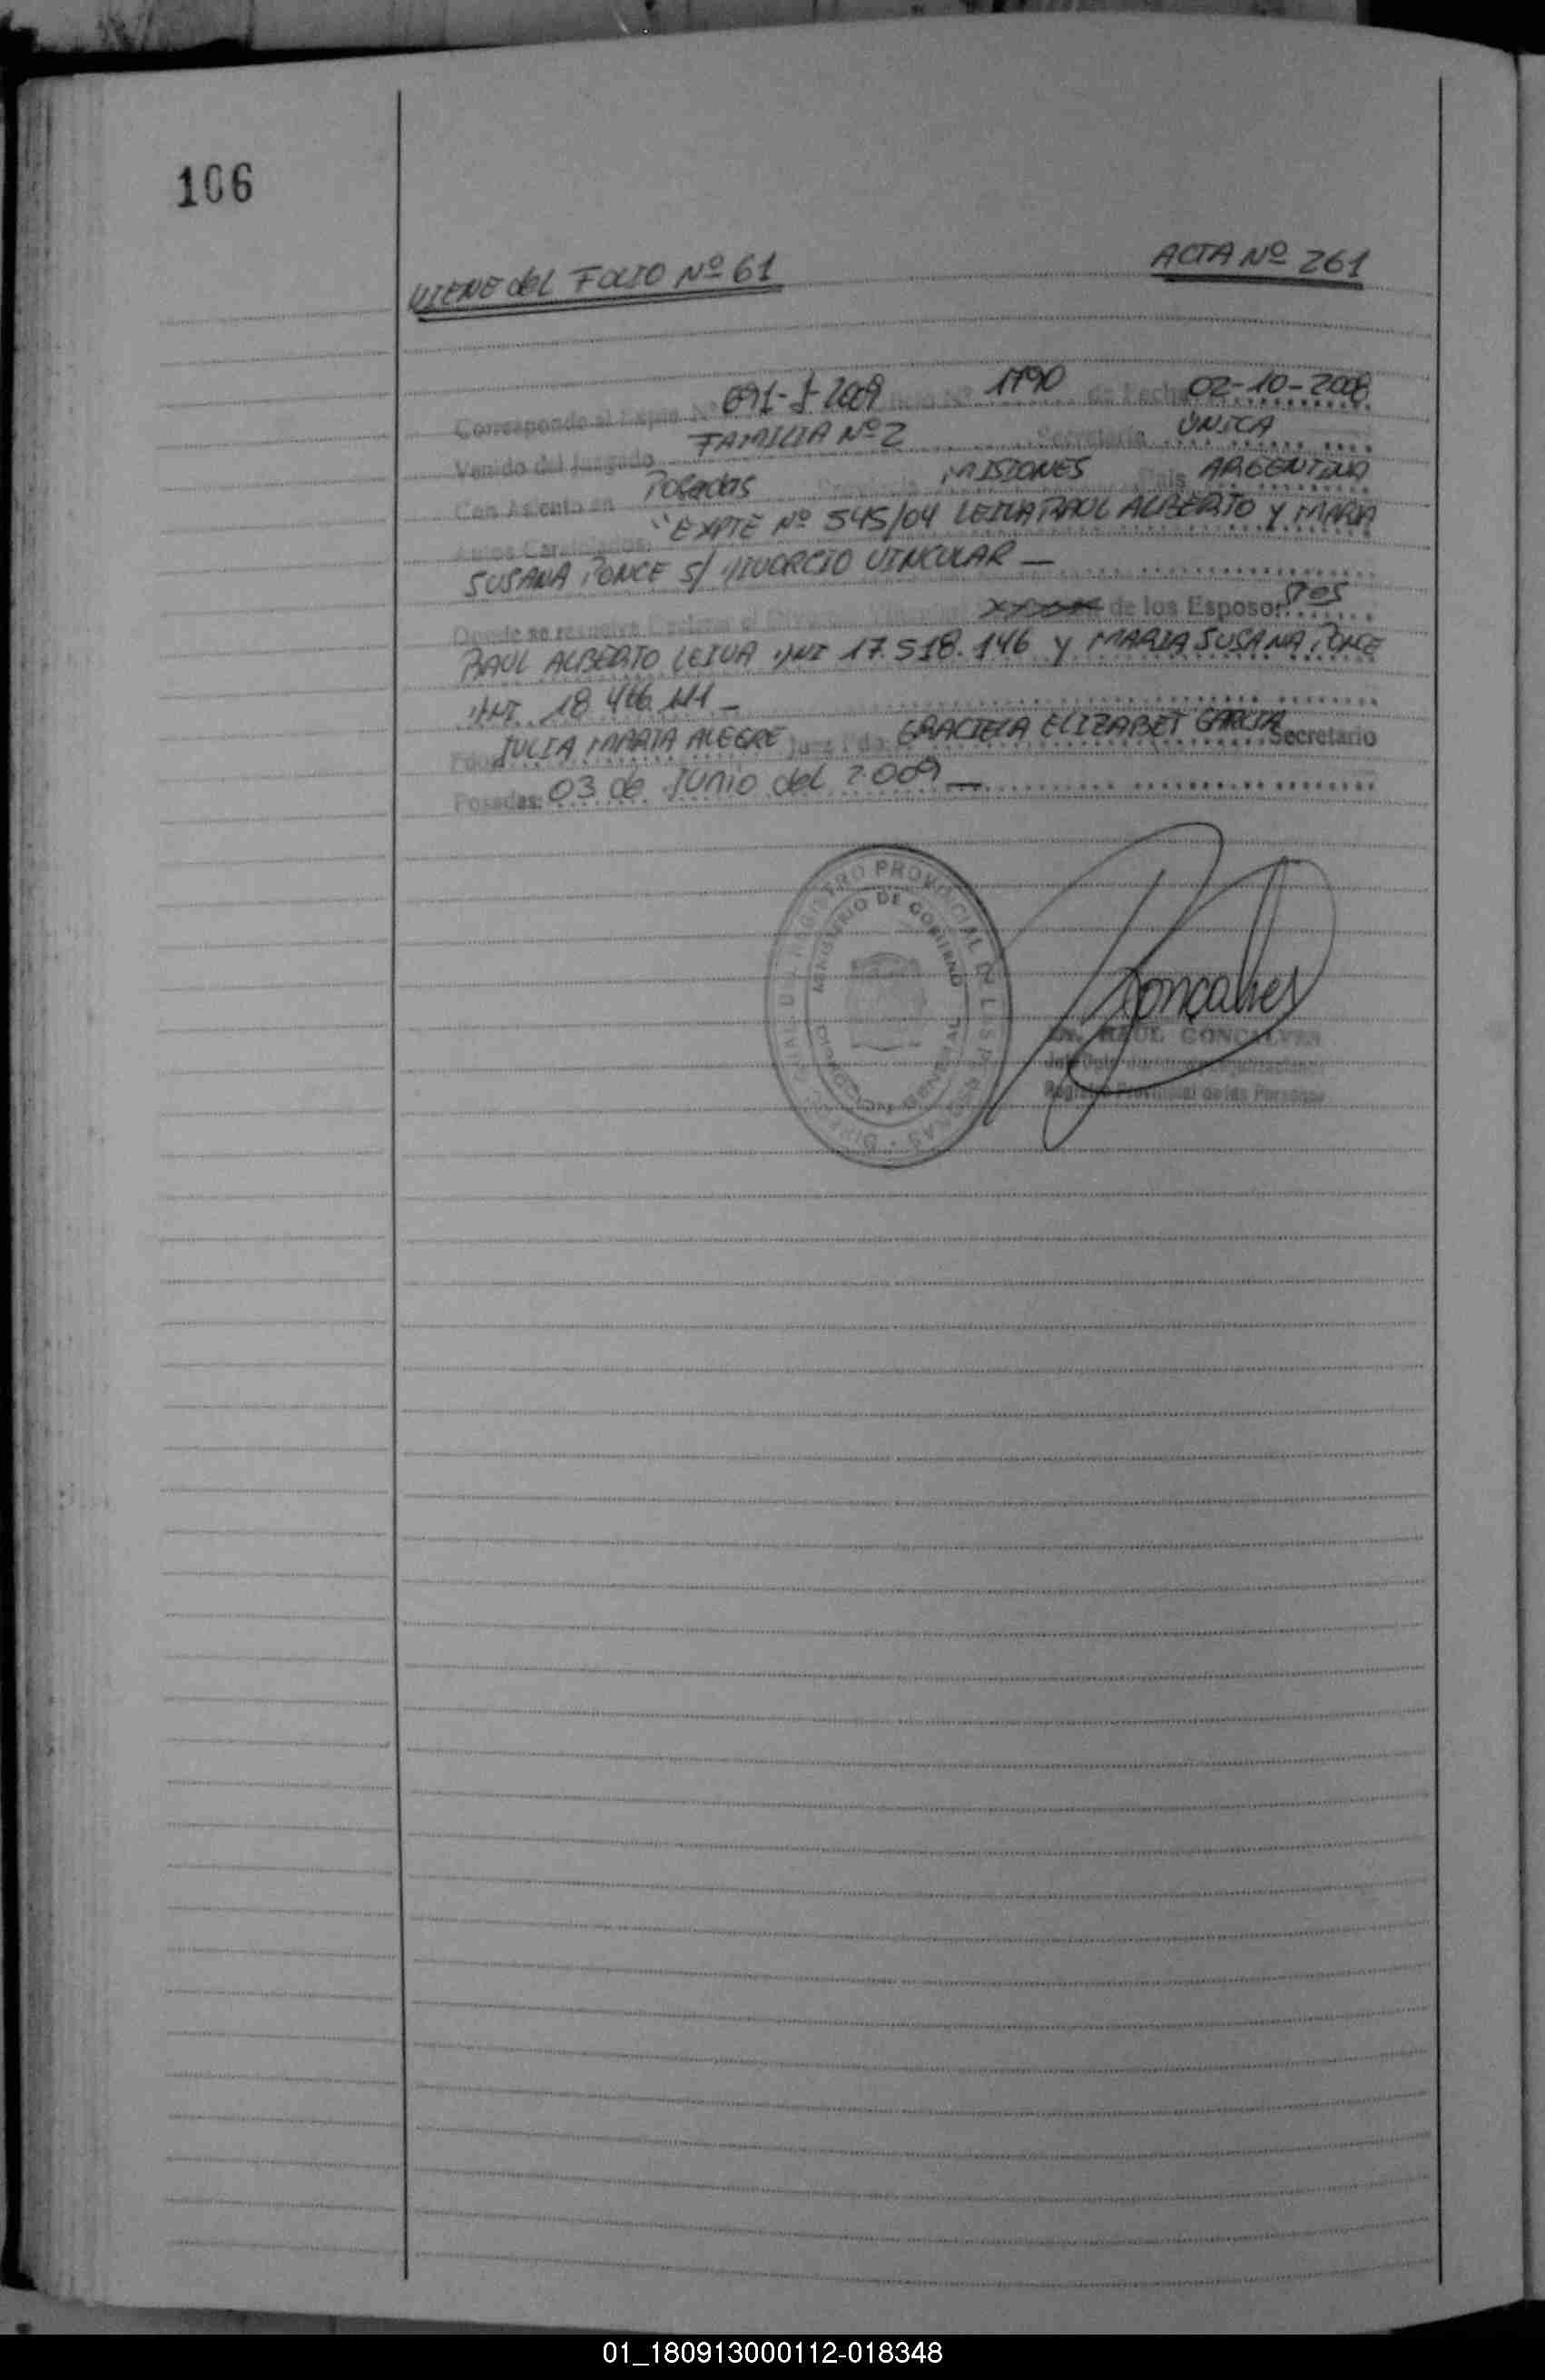 106
VIENE del FOLIO Nº 61 ACTA Nº 261
Corresponde al Expte. Nº 691-J-2009 Oficio Nº 1790 de Fecha 02-10-2008
Venido del Juzgado FAMILIA Nº 2 Secretaria ÚNICA
Con Asiento en Posadas Provincia MISIONES País ARGENTINA
Autos Caratulados: "EXPTE Nº 545/04 LEIVA RAUL ALBERTO Y MARIA
SUSANA PONCE S/ DIVORCIO VINCULAR —
Donde se resuelve Declarar el Divorcio Vincular de los Esposos:
RAUL ALBERTO LEIVA DNI 17.518.146 y MARIA SUSANA PONCE
DNI 18
Fdo: JULIA MARIA ALEGRE Juez Fdo: GRACIELA ELIZABET GARCIA Secretario
Posadas: 03 de Junio del 2009 —
DIRECCION GENERAL DEL REGISTRO PROVINCIAL DE LAS PERSONAS
MINISTERIO DE GOBIERNO
Goncalves
RAUL GONCALVES
Registro Provincial de las Personas
01_180913000112-018348